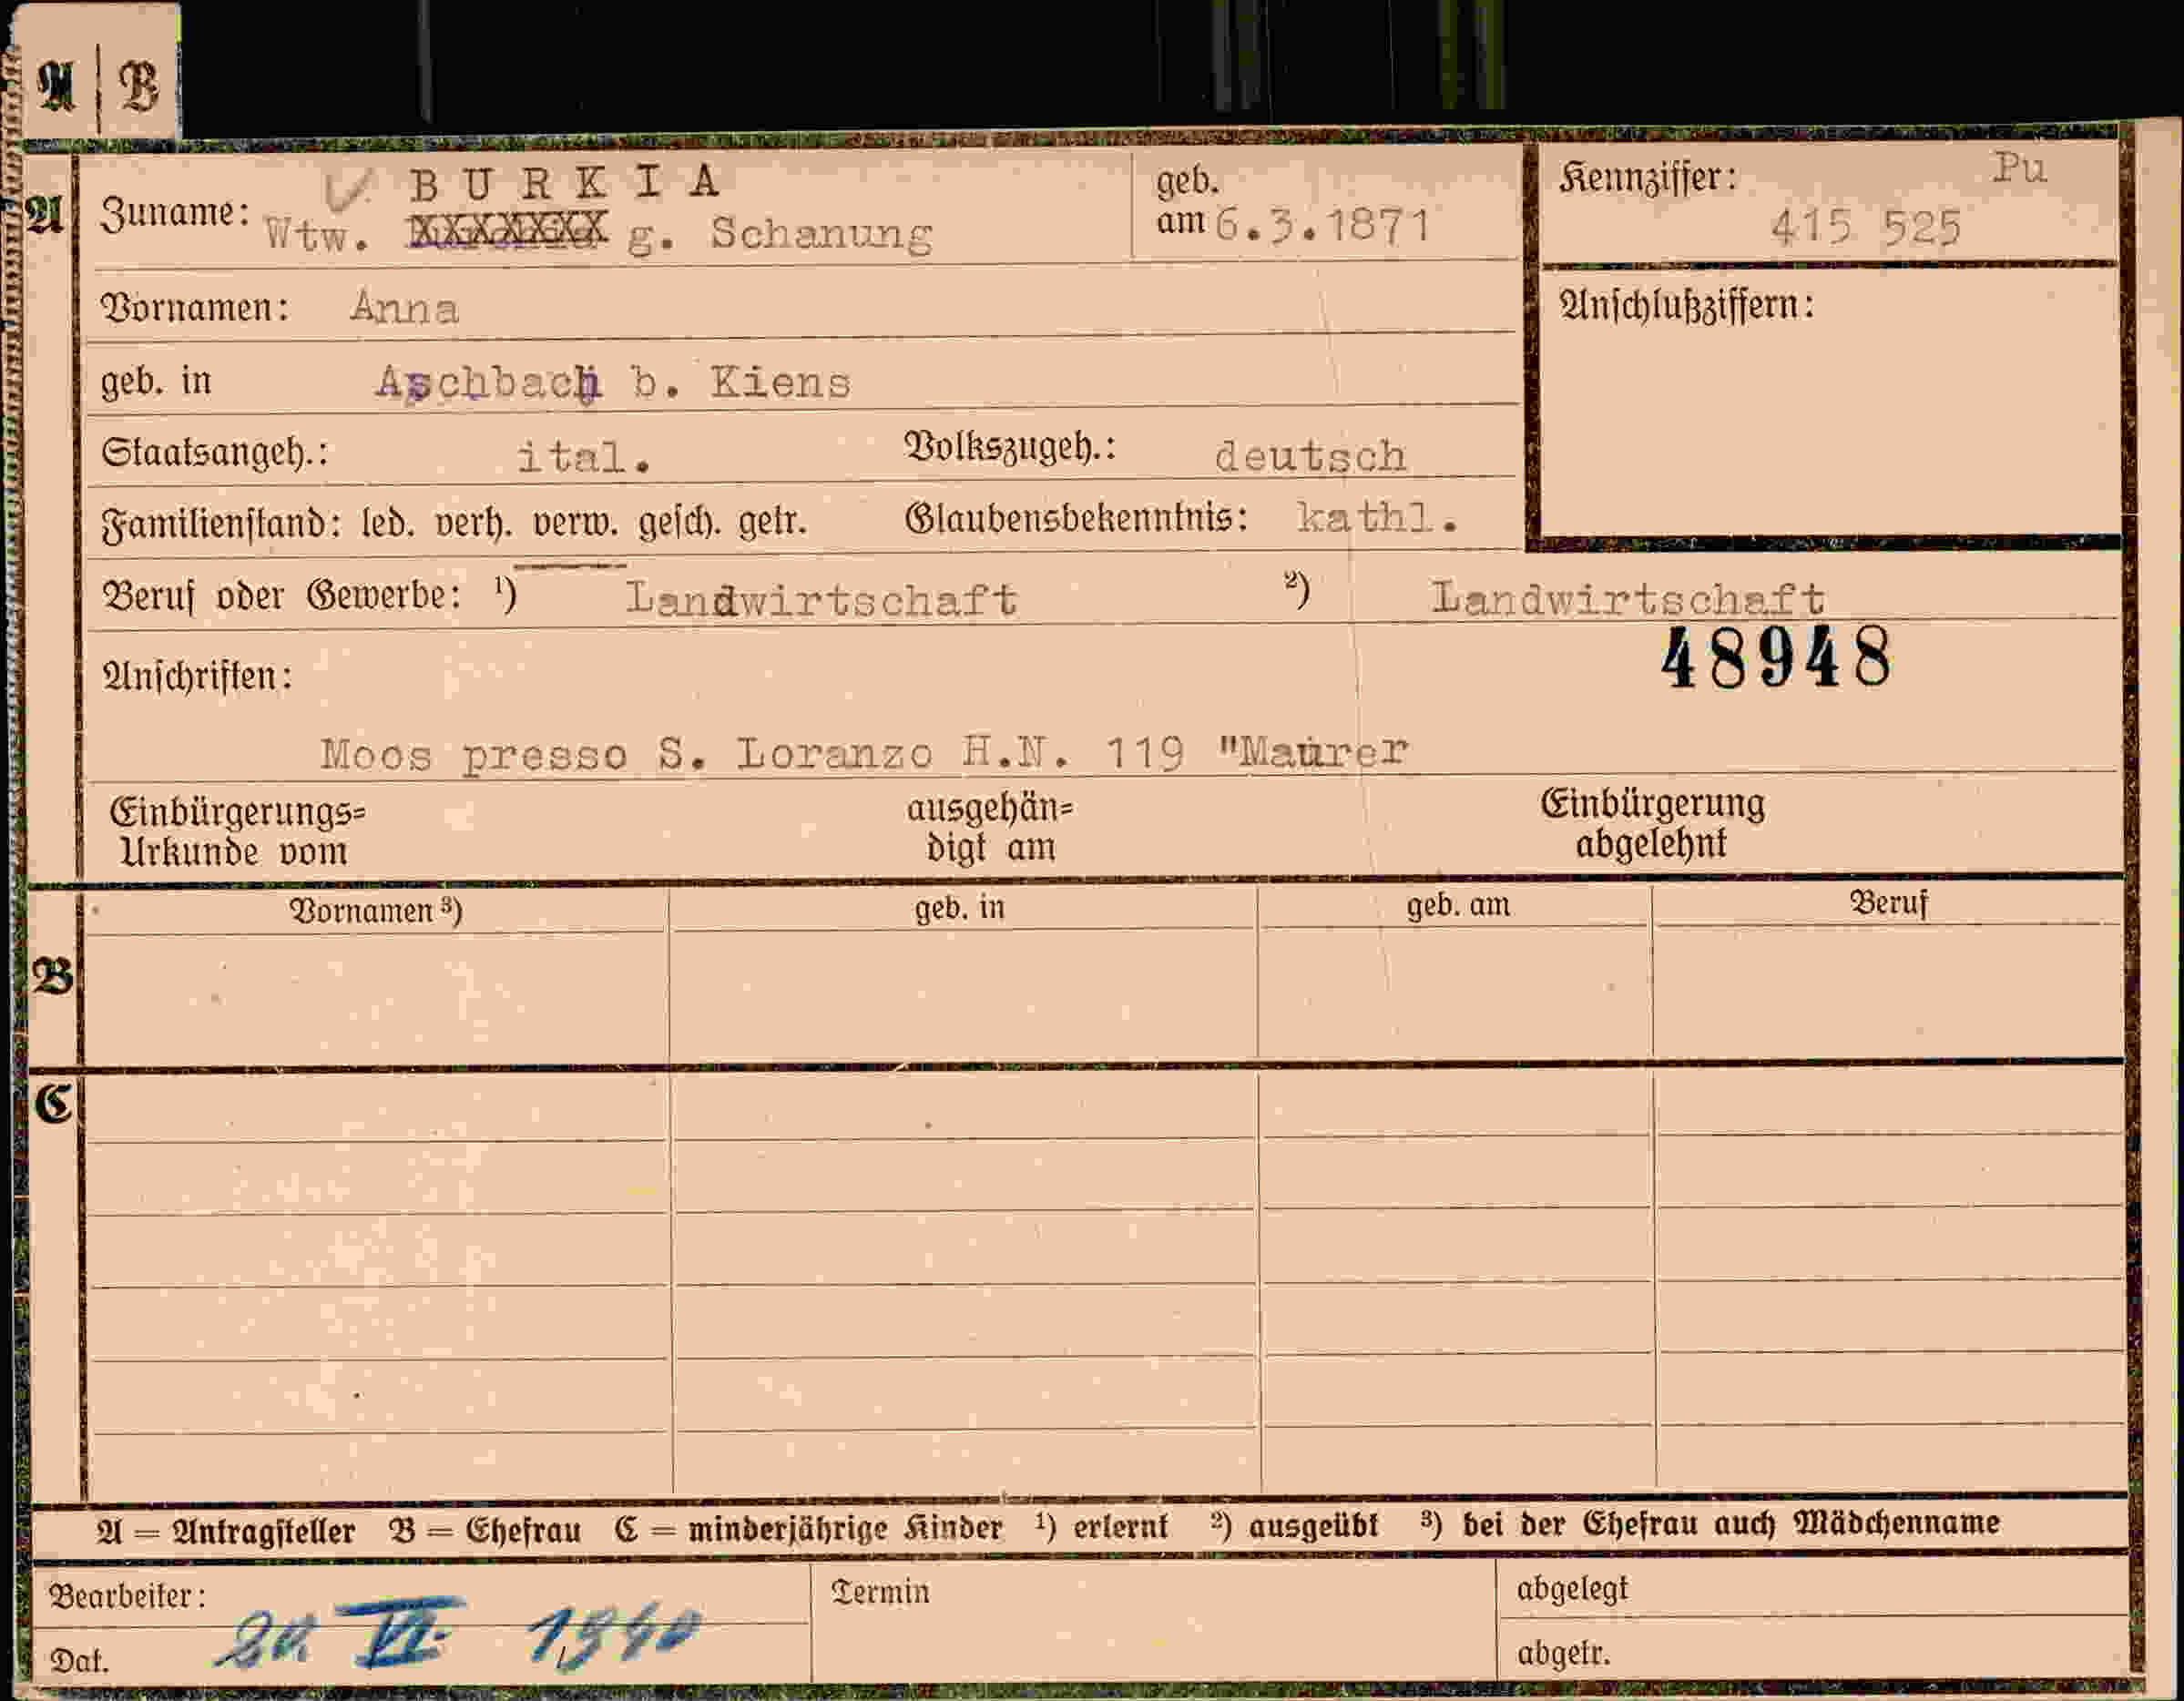 A | B
A
Zuname: BURKIA
Wtw. XXXXXXX g. Schanung
geb. am 6.3.1871
Kennziffer: Pu
415 525
Vornamen: Anna
Anschlußziffern:
geb. in Aschbach b. Kiens
Staatsangeh.: ital. Volkszugeh.: deutsch
Familienstand: led. verh. verw. gesch. getr. Glaubensbekenntnis: kathl.
Beruf oder Gewerbe: ¹) Landwirtschaft ²) Landwirtschaft
48948
Anschriften:
Moos presso S. Loranzo H.N. 119 "Maurer
Einbürgerungs= ausgehän= Einbürgerung
Urkunde vom digt am abgelehnt
Vornamen ³) geb. in geb. am Beruf
B
C
A = Antragsteller B = Ehefrau C = minderjährige Kinder ¹) erlernt ²) ausgeübt ³) bei der Ehefrau auch Mädchenname
Bearbeiter: Termin abgelegt
Dat. VI. 1940 abgetr.